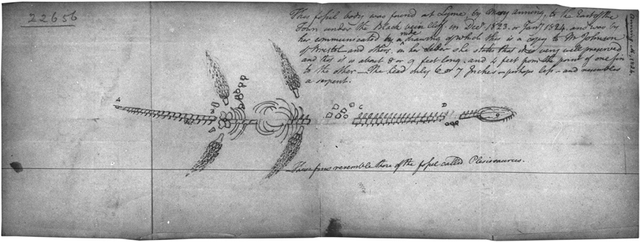 22656
This fossil body was found at Lyme, by Mary Anning, to the East of the
Town under the Black ven cliff in Decr 1823. or Jany 1824. and was by
her communicated by a drawing of which this is a copy to Mr Johnson
made
of Bristol and others, in her letter she states that it is very well preserved
and this is about 8 or 9 feet long, and 4 feet from the point of one fin
to the other — The head only 6 or 7 Inches or perhaps less. and resembles
a serpent.
A
D
C
These fins resemble those of the fossil called Plesiosaurus.